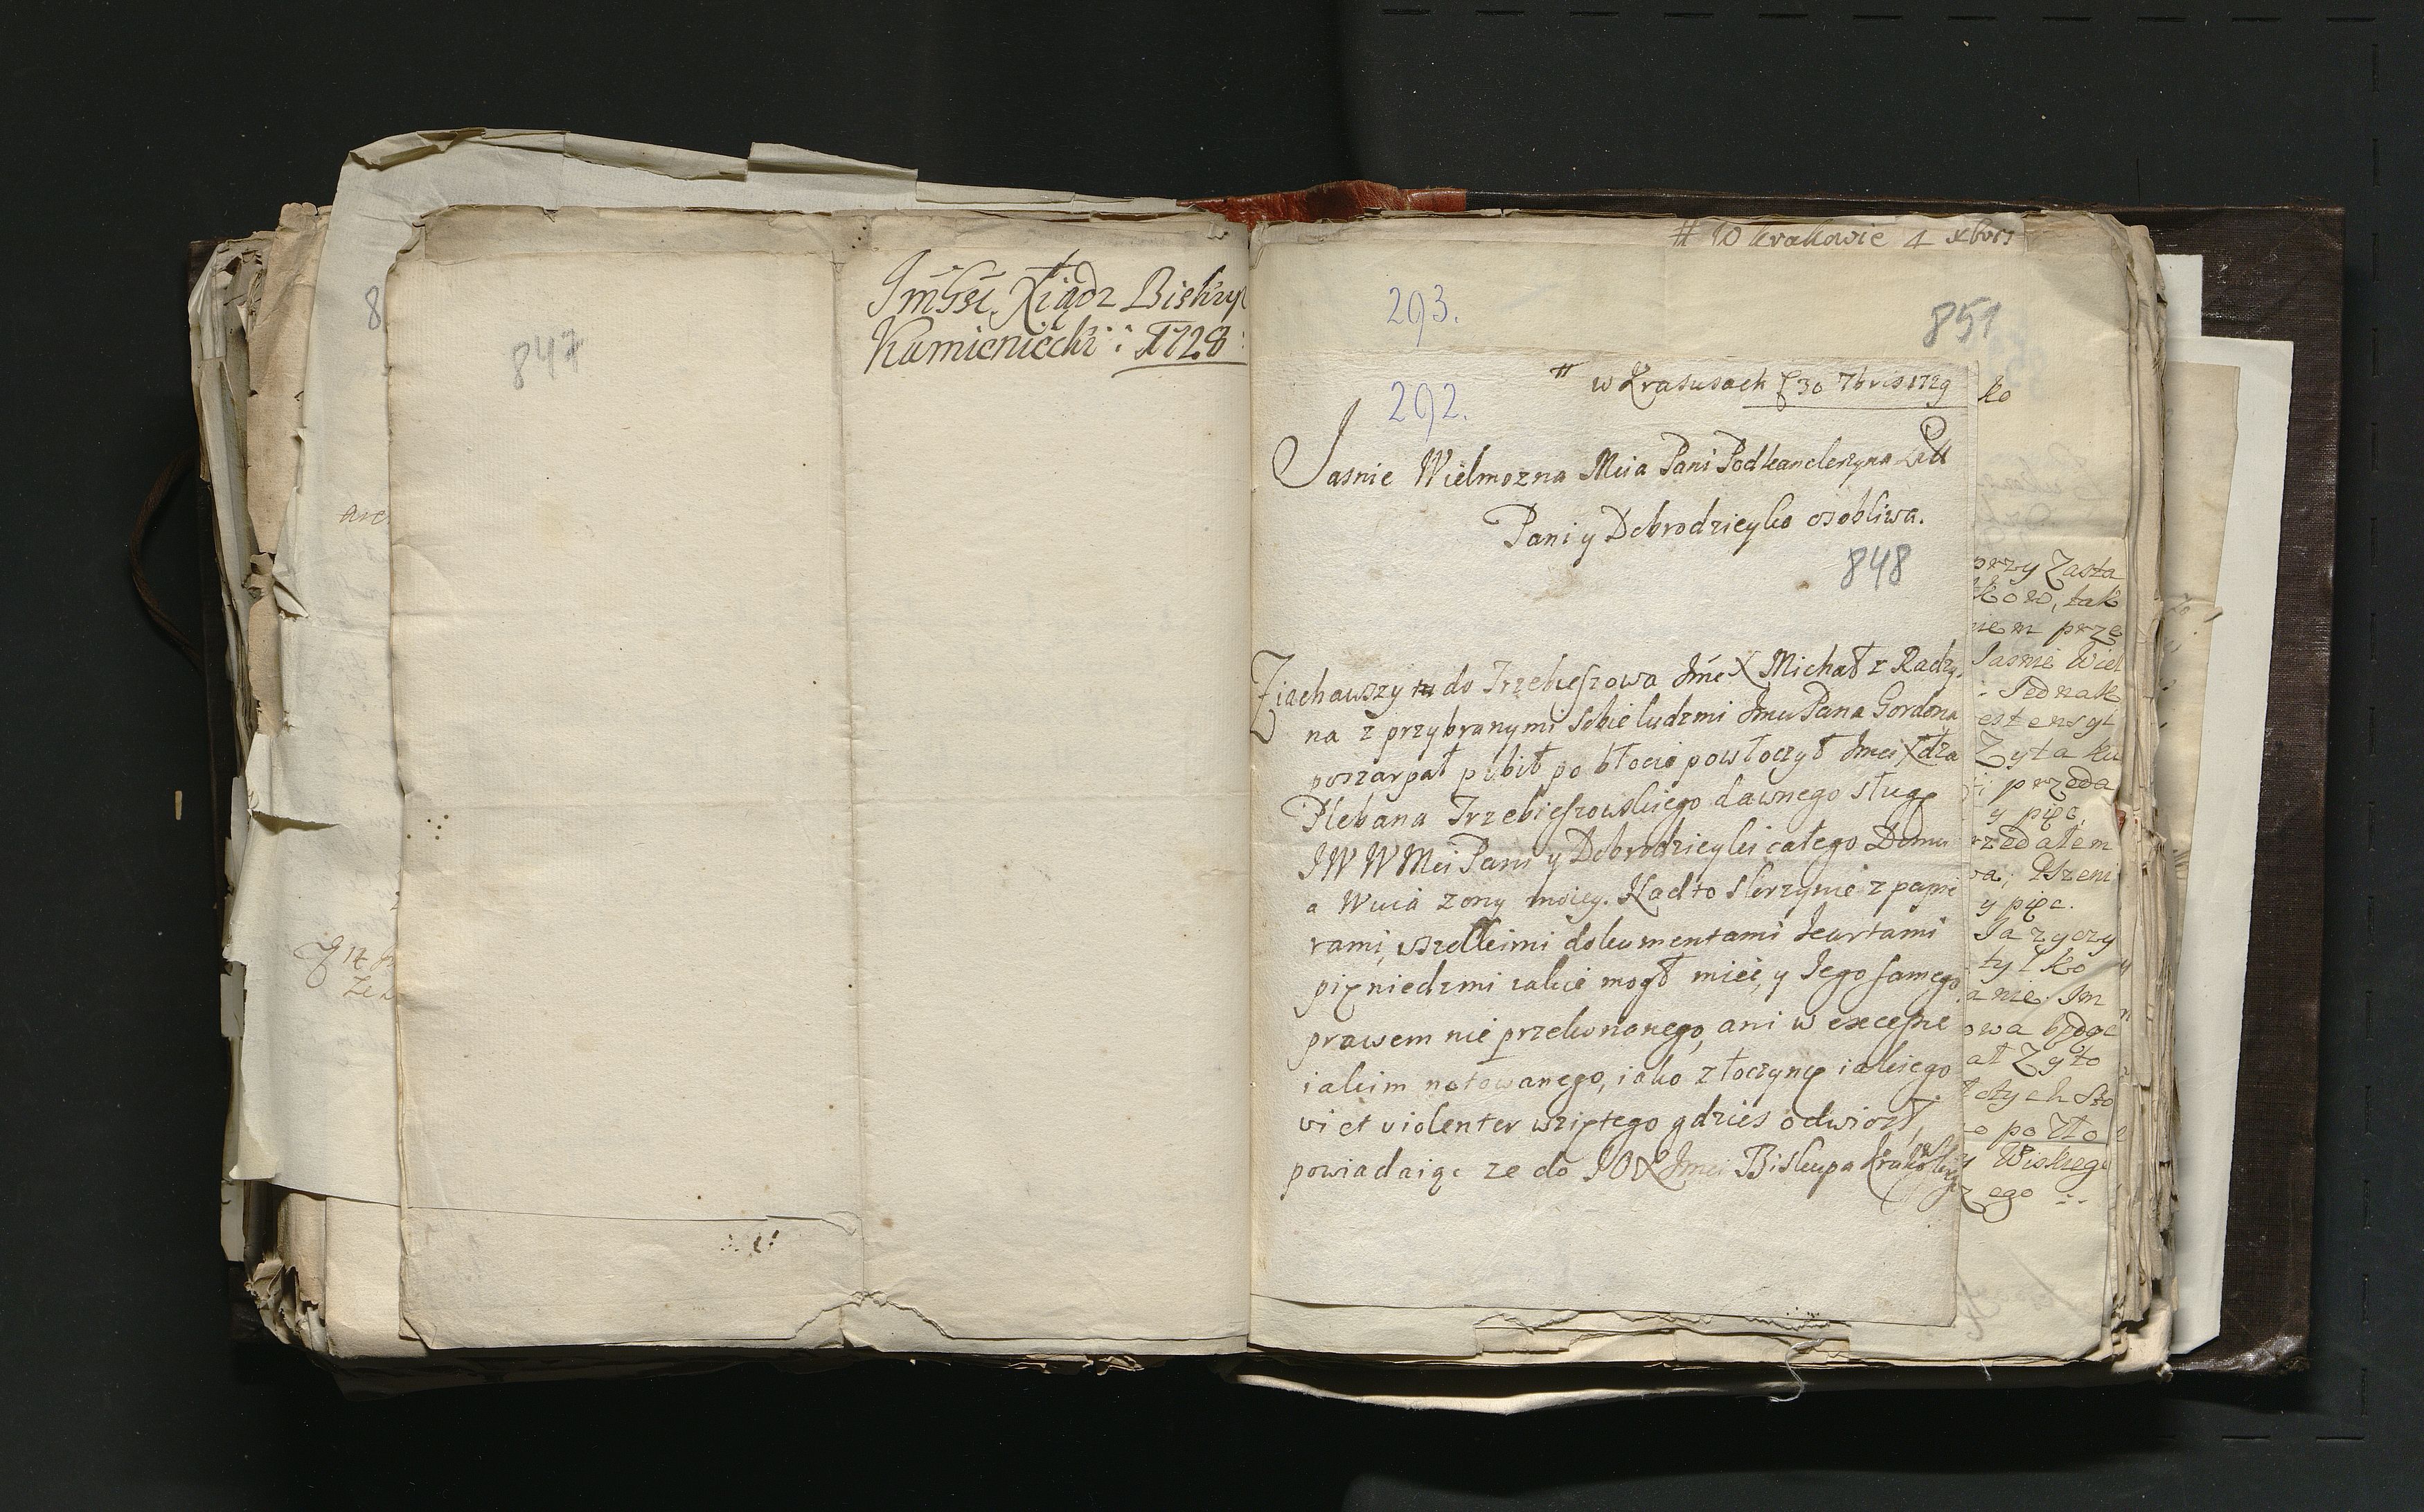 847
Jmść Xiądz Biskup
Kamieniecki: 1728:
# W Krakowie 1 xbris
293.
851
292.
# w Krasusach d 30 7bris 1729
Jasnie Wielmozna Mcia Pani Podkanclerzyna Litt
Pani y Dobrodzieyko osobliwa.
848
Ziachawszy do Trzebeszowa Jmć X Michał z Radzy
na z przybranymi sobie ludzmi Jmci Pana Gordona
poszarpał pobił po błocie powłoczył Jmci Xdza
Plebana Trzebieszowskiego dawnego sługę
JW WMci Pani y Dobrodzieyki całego Domu
a Wuia zony moiey. Nadto skrzynie z papie
rami, wszelkimi dokumentami kwitami
pięniedzmi iakie mogł mieć, y Jego samego
prawem nie przekonanego, ani w excessie
iakim notowanego, iako złoczyncę iakiego
vi et violenter wziętego gdzies odwiozł,
powiadaiąc ze do JOX Jmci Biskupa Krakowskiego
ko
przy Zasta
kow, tak
nem prze
Jasnie Wiel
Jednak
Zyta ku
przeda
y pięc,
rzedałem
va, Pszeni
y pięc.
Ja zyczy
tylko
a nie Jm
owa będąc
at Zyto
tych Sto
o po Zło
Wiskiego
ego